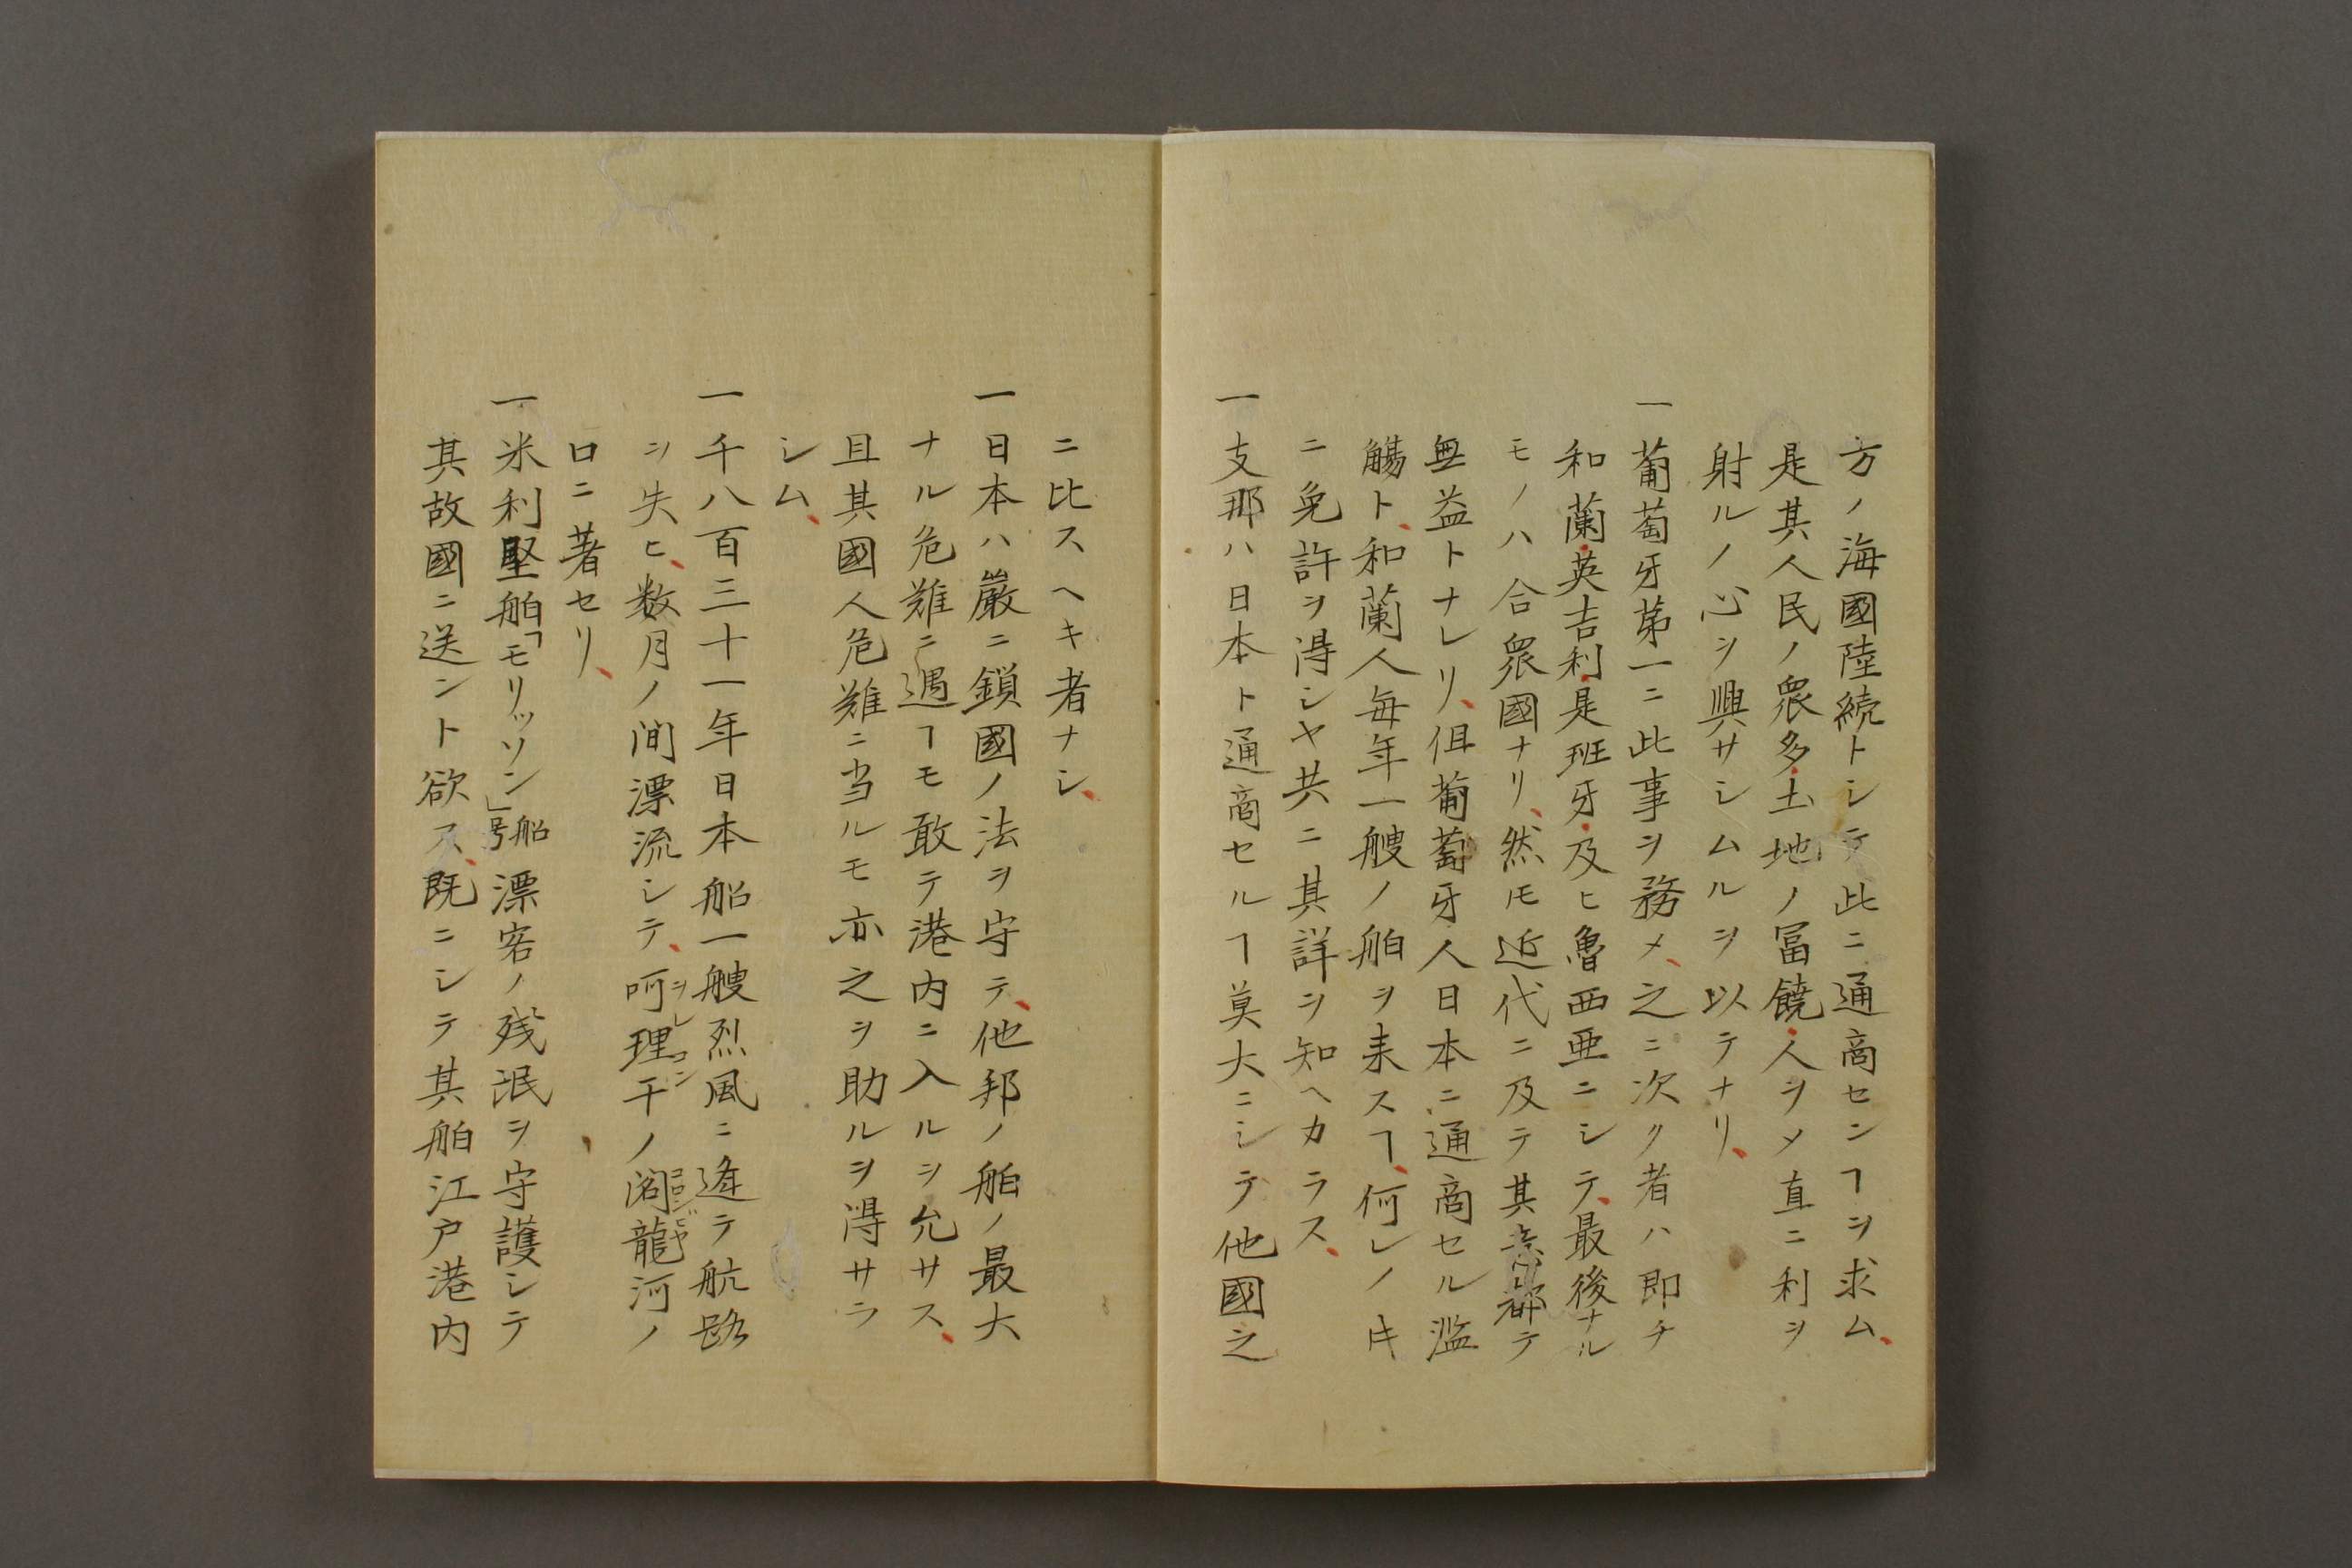 方ノ海國陸続トシテ此ニ通商センヿヲ求ム、
是其人民ノ衆多、土地ノ冨饒、人ヲメ直ニ利ヲ
射ルノ心ヲ興サシムルヲ以テナリ、
一葡萄牙第一ニ此事ヲ務メ、之ニ次ク者ハ即チ
和蘭、英吉利、是班牙、及ヒ魯西亜ニシテ、最後ナル
モノハ合衆國ナリ、然モ近代ニ及テ其意都テ
無益トナレリ、但葡萄牙人日本ニ通商セル濫
觴ト、和蘭人毎年一艘ノ舶ヲ来スヿ、何レノ𪜈
ニ免許ヲ得シヤ共ニ其詳ヲ知ヘカラス、
一支那ハ日本ト通商セルヿ莫大ニシテ他國之
ニ比スヘキ者ナシ、
一日本ハ嚴ニ鎖國ノ法ヲ守テ、他邦ノ舶ノ最大
ナル危難ニ遇フヿモ敢テ港内ニ入ルヲ允サス、
且其國人危難ニ当ルモ亦之ヲ助ルヲ得サラ
シム、
一千八百三十一年日本船一艘烈風ニ逢テ航路
ヲ失ヒ、数月ノ間漂流シテ、呵理干ノ閣龍河ノ
口ニ著セリ、
一米利堅舶「モリッソン」船号漂客ノ残氓ヲ守護シテ
其故國ニ送ント欲ス、既ニシテ其舶江戸港内